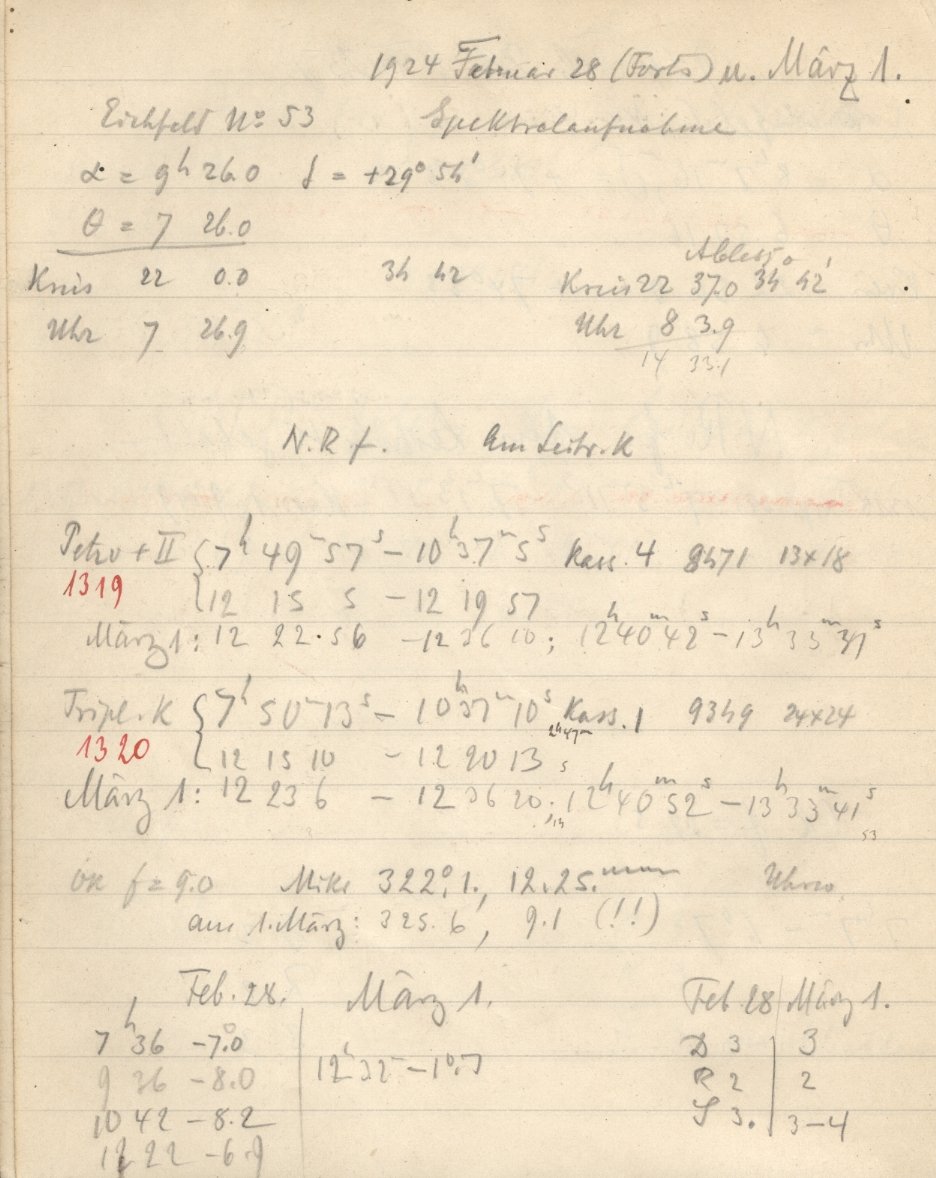 1924 Februar 28 (Forts) u. März 1.
Eichfeld No 53 Spektralaufnahme
α = 9h 26.0 δ = +29° 54'
θ = 7 26.0
Ables.
Kreis 22 0.0 34 42 Kreis 22 37.0 34 42'
Uhr 7 26.9 Uhr 8 3.9
14 33.1
N.R f. am Leitr. K
Petzv + II 7h 49m 57s – 10h 37m 5s Kass. 4 13×18
1319 12 15 5 – 12 19 57
März 1: 12 22.56 – 12 36 10; 12h 40m 42s – 13h 33m
Tripl. K 7h 50m 13s – 10h 37m 10s Kass. 1 9349 24×24
2h47m
1320 12 15 10 – 12 20 13
März 1: 12 23 6 – 12 36 20; 12h 40m 52s – 13h 33m 41s
53
f = 9.0 Mikr 322°.1, 12.25 mm
am 1. März: 325.6, 9.1 (!!)
Feb. 28. März 1. Feb 28 März 1.
7h 36 –7°.0 D 3 3
9 36 –8.0 12h 32m –1°.7 R 2 2
10 42 –8.2 S 3. 3–4
12 22 –6.9